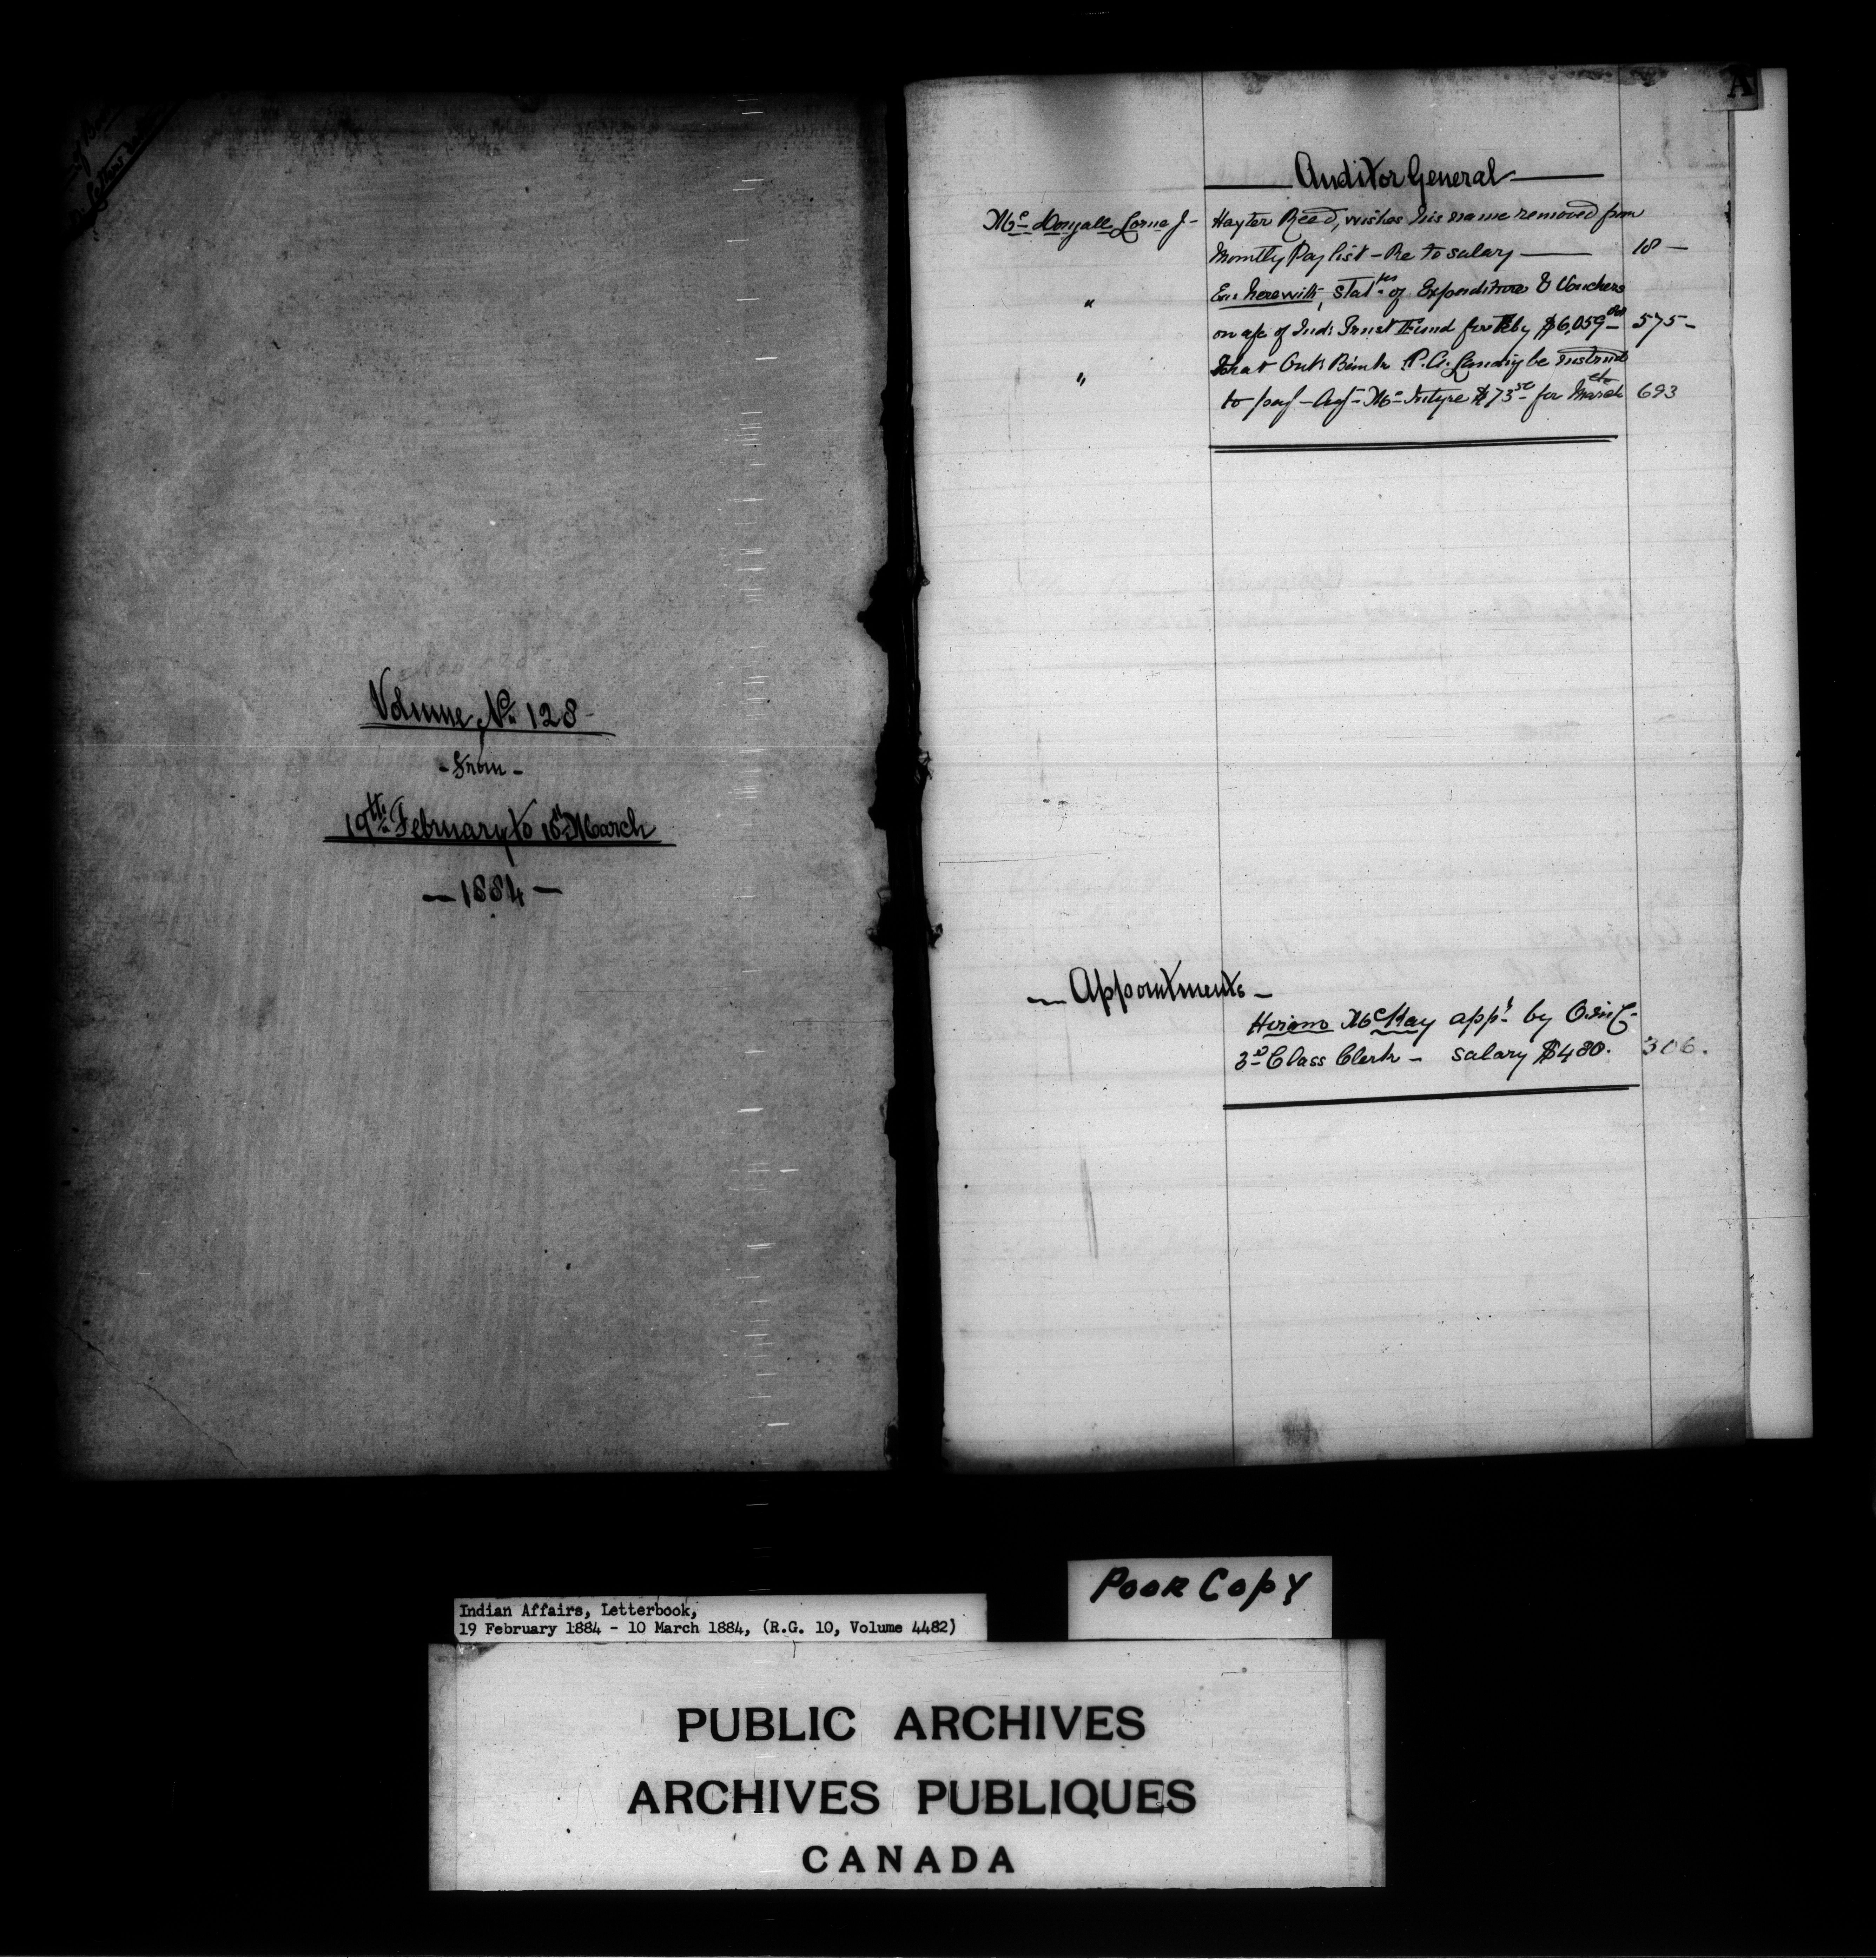 Volume No 128
- From -
19th February to 10th March
— 1884 —
A
Auditor General
McDougall Lorne J - Hayter Reed, wishes his name removed from
Montly Pay list - Re to salary — 18 —
" Enc herewith, Statts of Expenditure & Vouchers
on a/c of Indn Trust Fund for Feby $6,059 575 -
" That Ont Bank P.A. Landing be instrud
to pay - Agt McIntyre $73.50 for March etc 693
— Appointments —
Hiram McKay appt by O.in C-
3rd Class Clerk - salary $480. 306.
POOR COPY
Indian Affairs, Letterbook,
19 February 1884 - 10 March 1884, (R.G. 10, Volume 4482)
PUBLIC ARCHIVES
ARCHIVES PUBLIQUES
CANADA